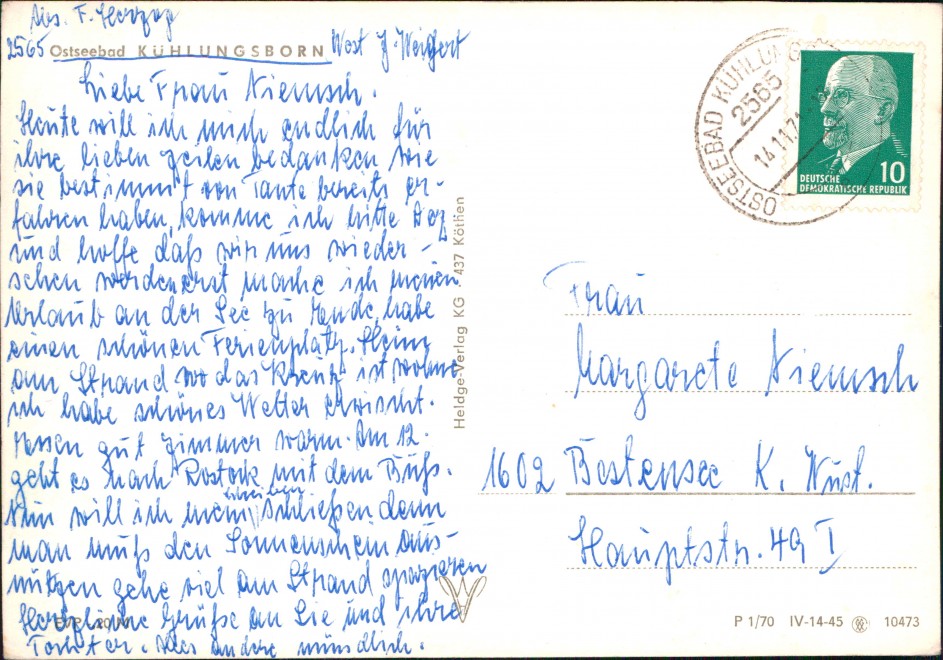 Abs. F. Herzog
2565 Ostseebad KÜHLUNGSBORN West J. Weigert
Liebe Frau Niemsch.
Heute will ich mich endlich für
ihre lieben Zeilen bedanken wie
sie bestimmt von Tante bereits er-
fahren haben, komme ich bitte
und hoffe daß wir uns wieder-
sehen werden erst mache ich meinen
Urlaub an der See zu Ende, habe
einen schönen Ferienplatz. Heim
am Strand wo das Kreuz ist wohne
ich habe schönes Wetter erwischt.
Essen gut Zimmer warm. Am 12.
geht es nach Rostock mit dem Buß.
Nun will ich mein schreiben schließen denn
man muß den Sonnenschein aus-
nützen gehe viel am Strand spazieren
Herzliche Grüße an Sie und ihre
Tochter. Alles andere mündlich.
Heldge-Verlag KG 437 Köthen
OSTSEEBAD KÜHLUNG
2565
14.11.71
DEUTSCHE
DEMOKRATISCHE REPUBLIK
10
Frau
Margarete Niemsch
1602 Bestensee K. Wust.
Hauptstr. 49 I
P 1/70 IV-14-45 10473